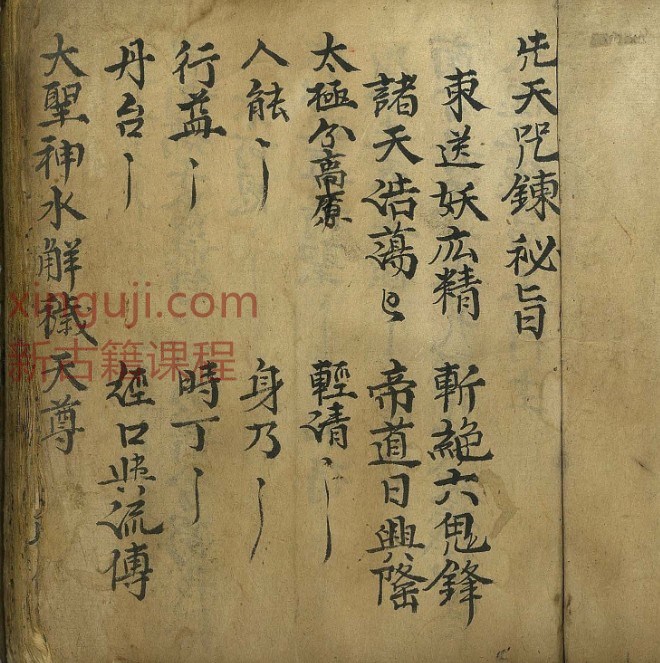 先天咒鍊秘旨
東送妖広精 斬絶六鬼鋒
諸天浩蕩〻 帝道日興隆
太極分高原 輕清〻
人能〻 身乃〻
行益〻 時丁〻
丹台〻 經口与流傳
大聖神水解穢天尊
xinguji.com
新古籍课程